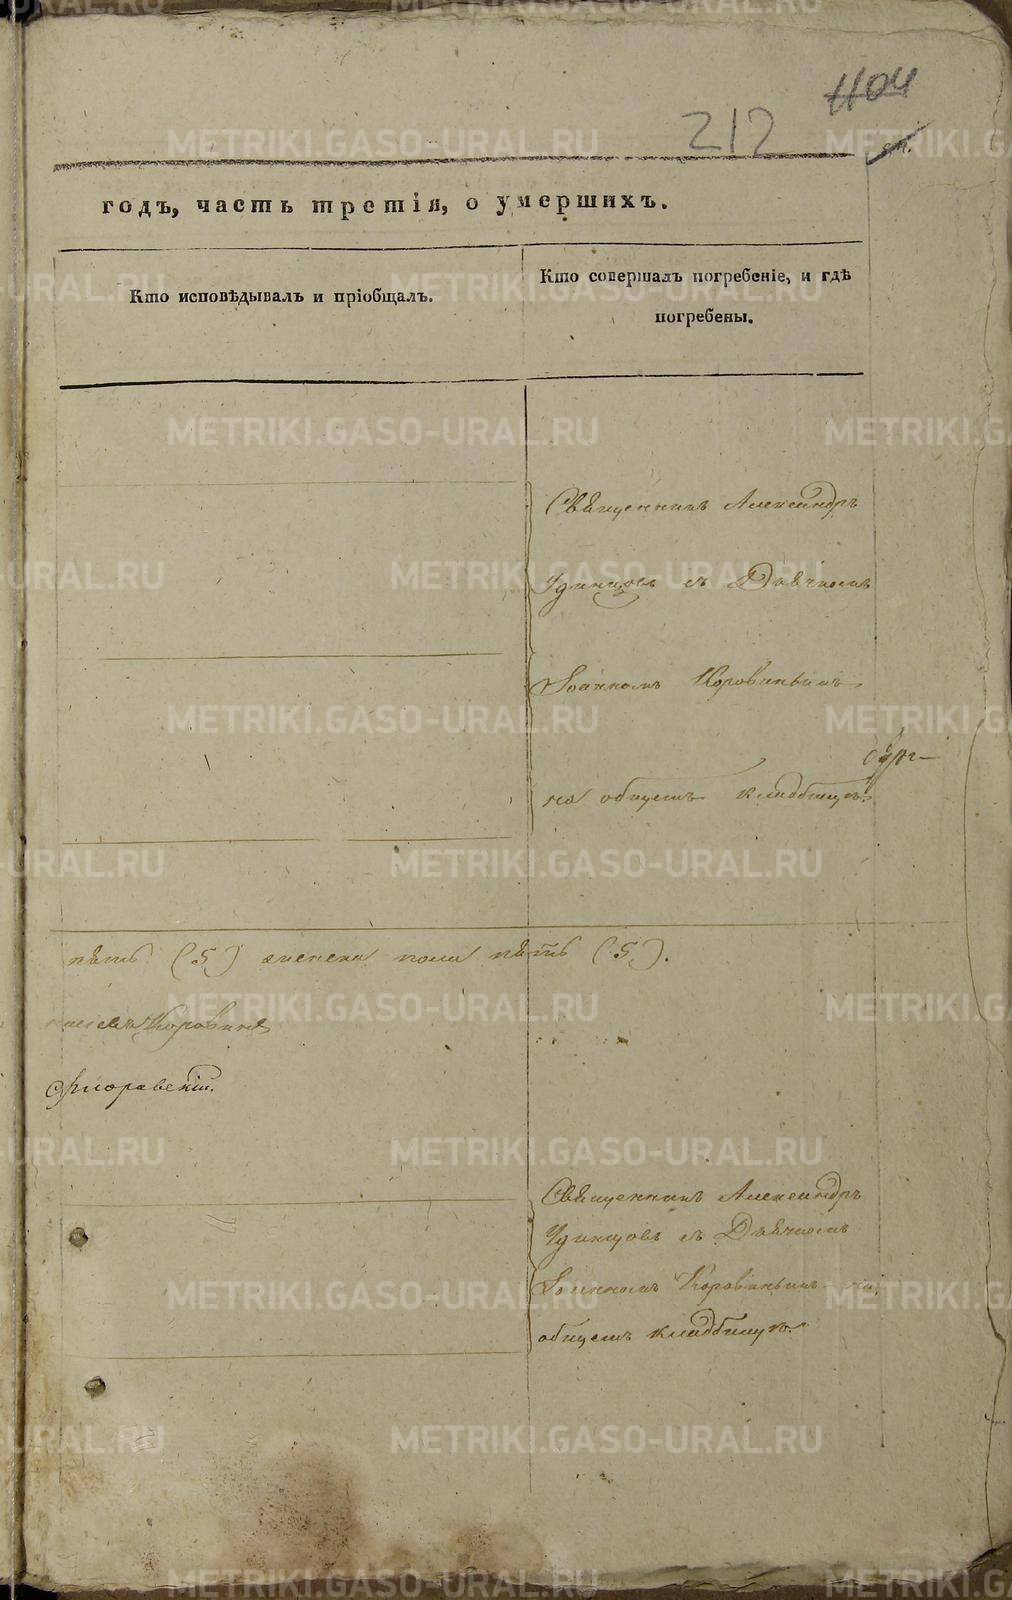 1104
212
годъ, часть третія, о умершихъ.
Кто исповѣдывалъ и пріобщалъ.
Кто совершалъ погребеніе, и гдѣ
погребены.
Священникъ Александръ
Удинцовъ съ Дьячкомъ
Іоанномъ Коровинымъ
на общемъ кладбищѣ.
пять (5) женска пола пять (5).
Коровинъ
Священникъ Александръ
Удинцовъ съ Дьячкомъ
Іоанномъ Коровинымъ на
общемъ кладбищѣ.
METRIKI.GASO-URAL.RU